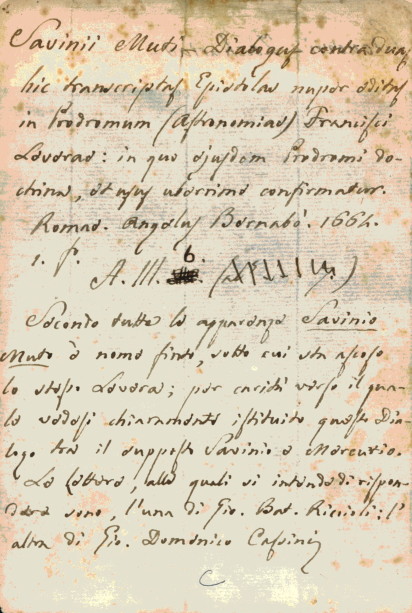 Savinii Muti - Dialogus contra duas
hic transcriptas Epistolas nuper editas
in Prodromum (Astronomiae) Francisci
Leverae: in quo ejusdem Prodromi do-
ctrina, et usus uberrime confirmatur.
Romae. Angelus Bernabò. 1664.
1. f.
A. III. 6.
Secondo tutte le apparenze Savinio
Muto è nome finto, sotto cui sta ascoso
lo stesso Levera; per carità verso il qua-
le vedesi chiaramente istituito questo Dia-
logo tra il supposto Savinio e Mercurio.
Le lettere, alle quali si intende di rispon-
dere sono, l'una di Gio. Bat. Riccioli: l'
altra di Gio. Domenico Cassini